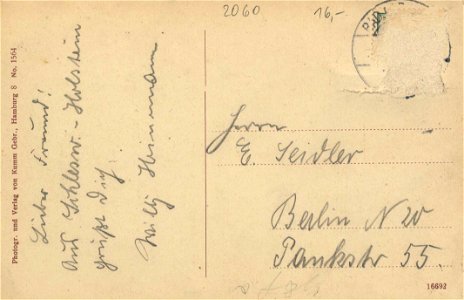 2060
16,-
Photogr. und Verlag von Kumm Gebr., Hamburg 8 No. 1564
Lieber Freund!
Aus Schlesw.-Holstein
grüßt Dich
Willy
Herrn
E. Seidler
Berlin N 20
Pankstr 55.
16692